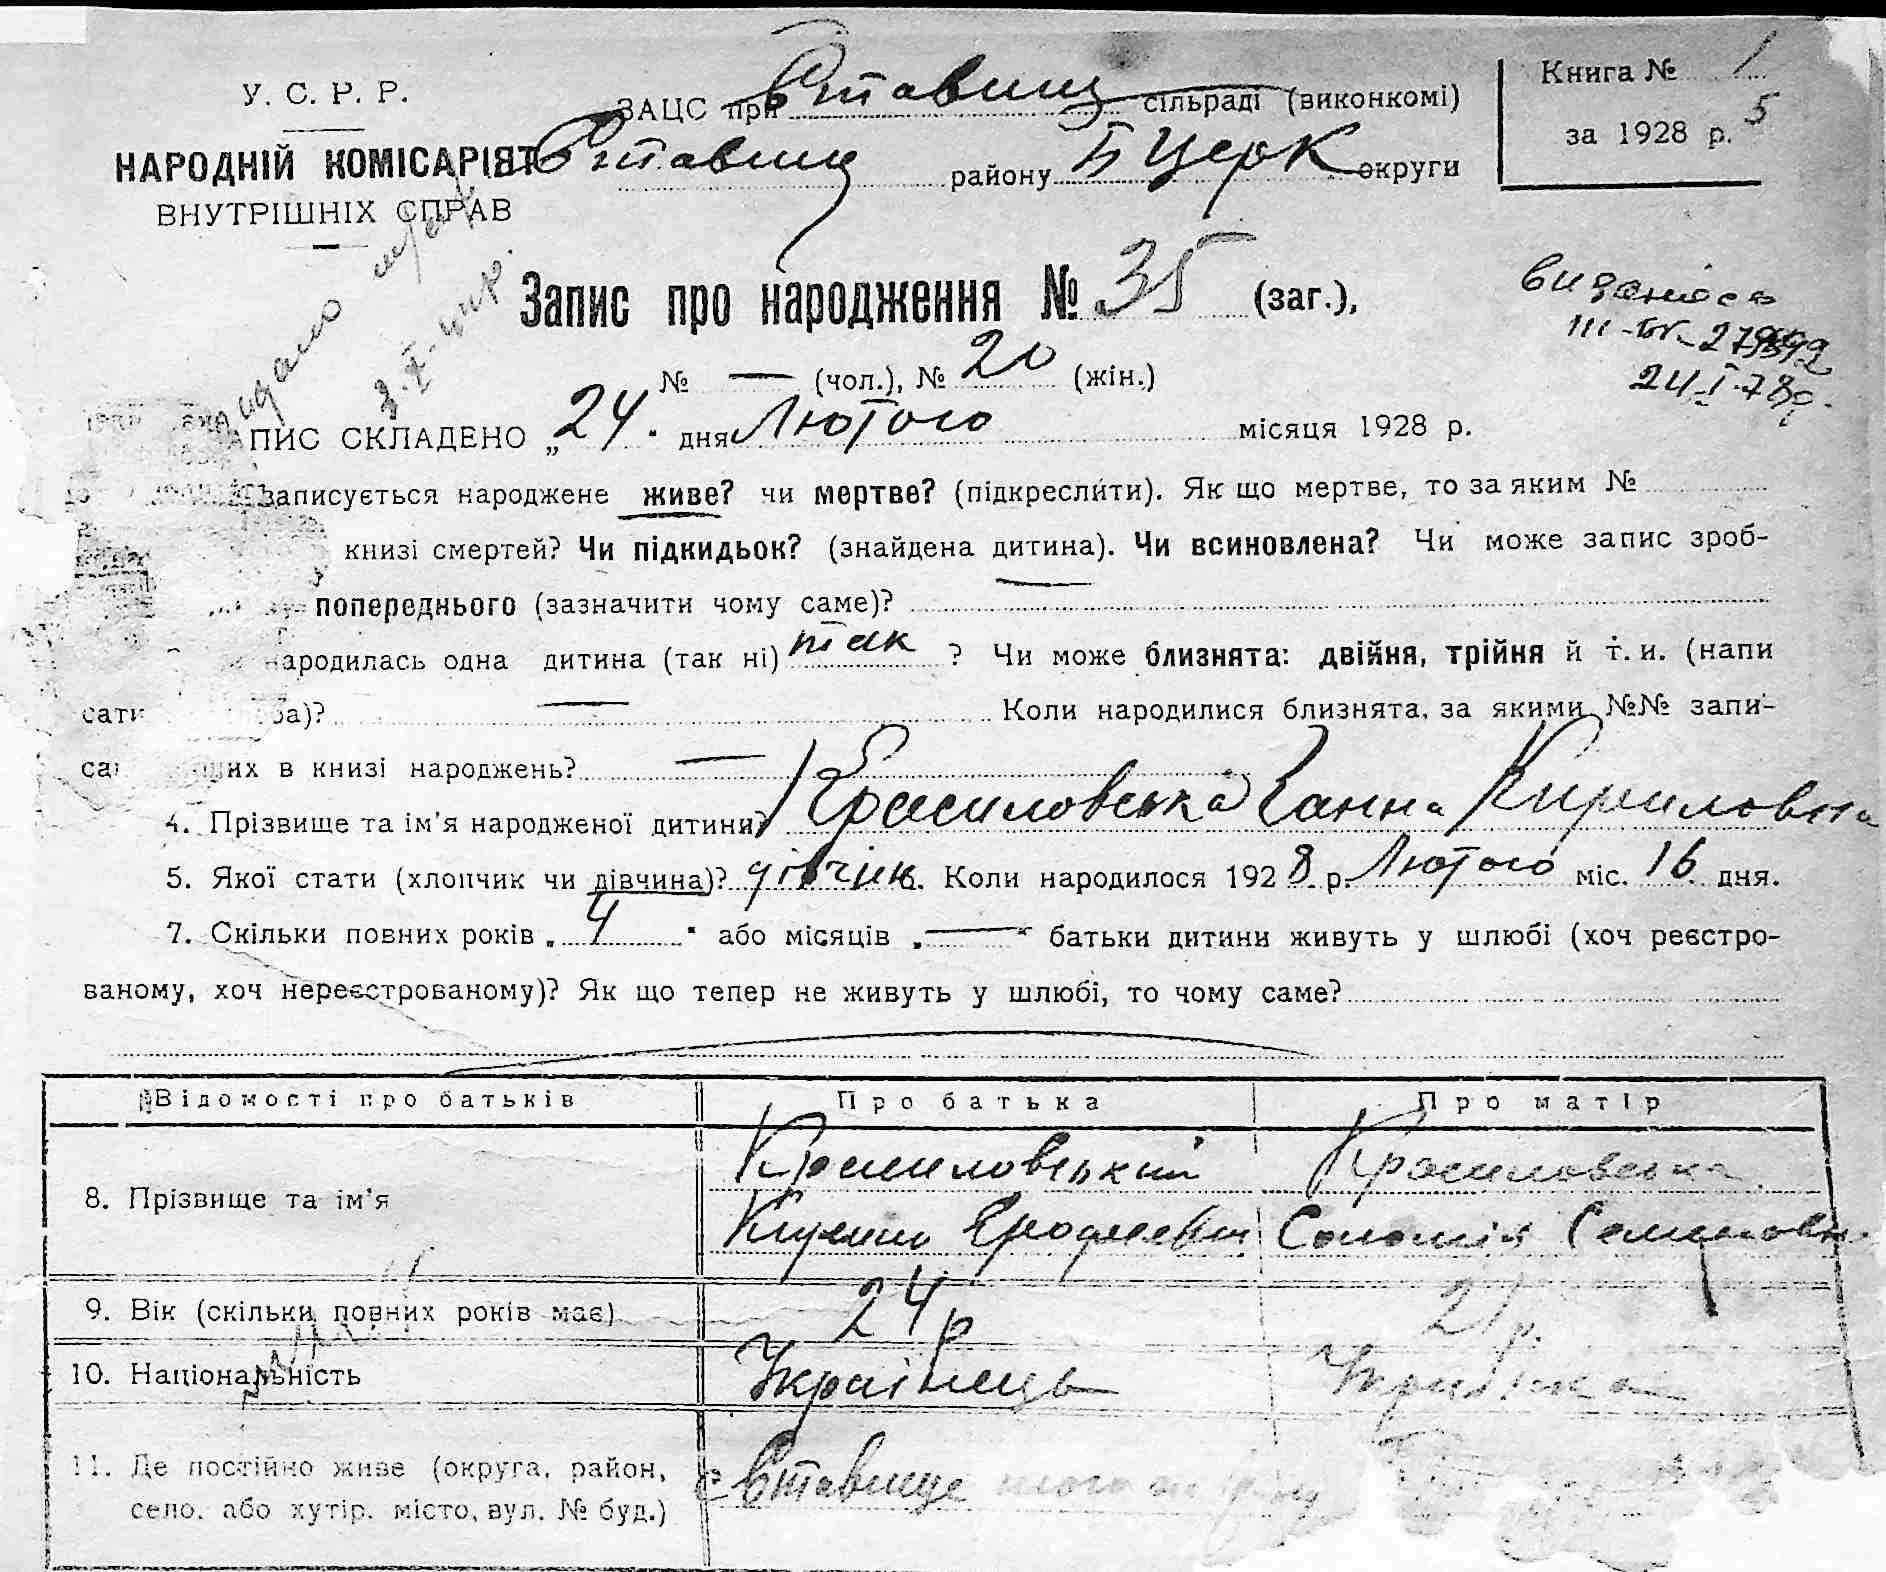 У. С. Р. Р.
НАРОДНІЙ КОМІСАРІЯТ
ВНУТРІШНІХ СПРАВ
ЗАЦС при Ставищ сільраді (виконкомі)
Ставищ району Б Церк округи
Книга № 1
за 1928 р. 5
Запис про народження № 35 (заг.),
№ — (чол.), № 20 (жін.)
24 I 78р.
АПИС СКЛАДЕНО „ 24 " дня Лютого місяця 1928 р.
записується народжене живе? чи мертве? (підкреслити). Як що мертве, то за яким №
книзі смертей? Чи підкидьок? (знайдена дитина). Чи всиновлена? Чи може запис зроб-
попереднього (зазначити чому саме)?
народилась одна дитина (так ні) так ? Чи може близнята: двійня, трійня й т. и. (напи
сати —  Коли народилися близнята, за якими №№ запи-
в книзі народжень? —
4. Прізвище та ім'я народженої дитини? Красиловська Ганна Кириловна
5. Якої стати (хлопчик чи дівчина)? дівчина. Коли народилося 1928 р. Лютого міс. 16 дня.
7. Скільки повних років „ 4 " або місяців „ — " батьки дитини живуть у шлюбі (хоч реєстро-
ваному, хоч нереєстрованому)? Як що тепер не живуть у шлюбі, то чому саме?
Відомості про батьків Про батька Про матір
8. Прізвище та ім'я Красиловський Красиловська
Кирило Єрофеєвич Соломія Семеновна
9. Вік (скільки повних років має) 24 р 21 р.
10. Національність Українець Українка
11. Де постійно живе (округа, район,
село, або хутір, місто, вул. № буд.) с Ставище